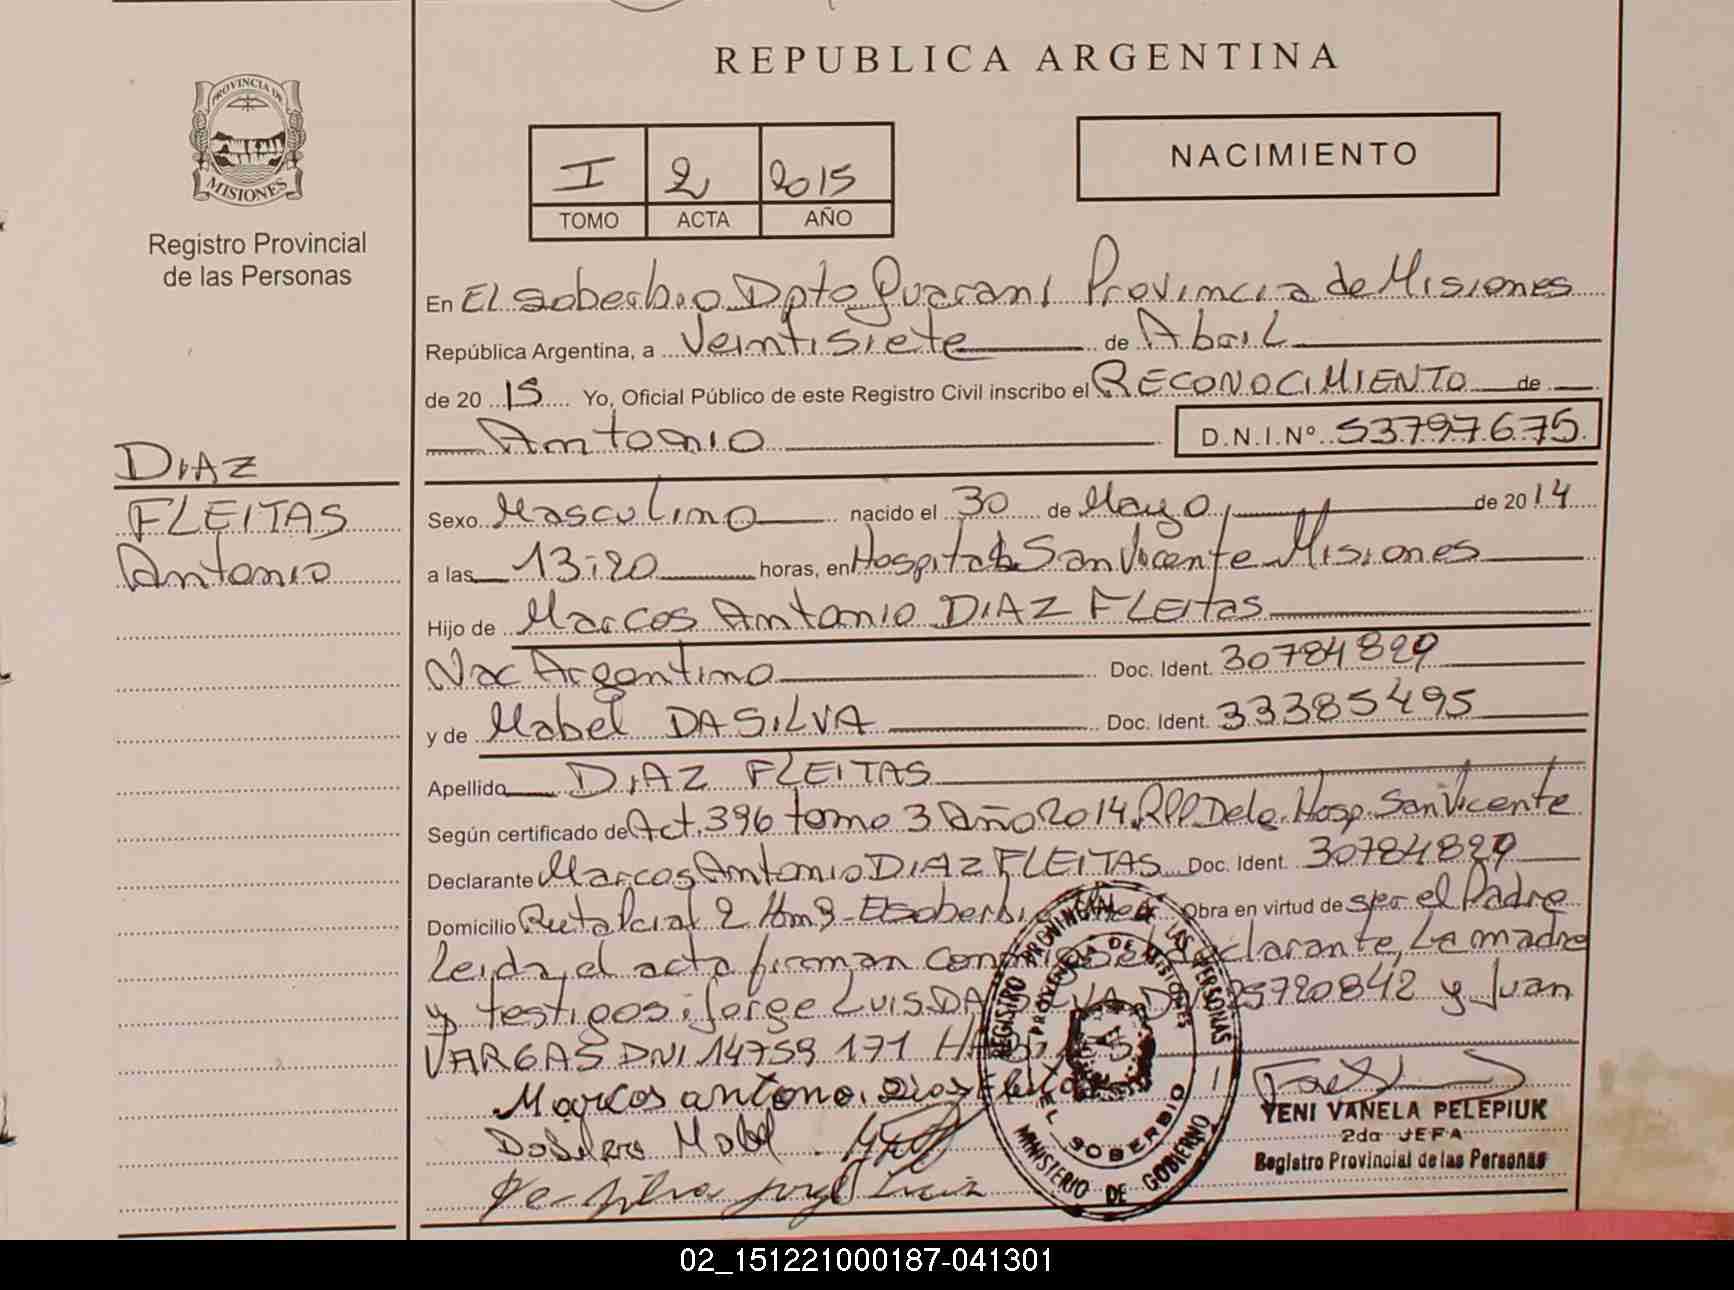 REPUBLICA ARGENTINA
PROVINCIA DE
MISIONES
Registro Provincial
de las Personas
NACIMIENTO
I 2 2015
TOMO ACTA AÑO
En El soberbio Dpto Guarani Provincia de Misiones
República Argentina, a Veintisiete de Abril
de 2015 Yo, Oficial Público de este Registro Civil inscribo el RECONOCIMIENTO de
Antonio D.N.I.Nº 53797675
DIAZ
FLEITAS
Antonio
Sexo Masculino nacido el 30 de Mayo de 2014
a las 13:20 horas, en Hospital San Vicente Misiones
Hijo de Marcos Antonio DIAZ FLEITAS
Nac Argentino Doc. Ident. 30784829
y de Mabel DA SILVA Doc. Ident. 33385495
Apellido DIAZ FLEITAS
Según certificado de Act. 396 tomo 3 Año 2014 Dele. Hosp. San Vicente
Declarante Marcos Antonio DIAZ FLEITAS Doc. Ident. 30784829
Domicilio Ruta Pcial 2 Km 9 El soberbio Obra en virtud de ser el Padre
Leida el acta firman conmigo el declarante, La madre
y testigos: Jorge Luis DA SILVA DNI 25720842 y Juan
VARGAS DNI 14759171
Marcos antonio Diaz Fleitas
Da Silva Mabel
Da Silva Jorge Luis
REGISTRO PROVINCIAL DE LAS PERSONAS
PROVINCIA DE MISIONES
EL SOBERBIO
MINISTERIO DE GOBIERNO
YENI VANELA PELEPIUK
2da JEFA
Registro Provincial de las Personas
02_151221000187-041301